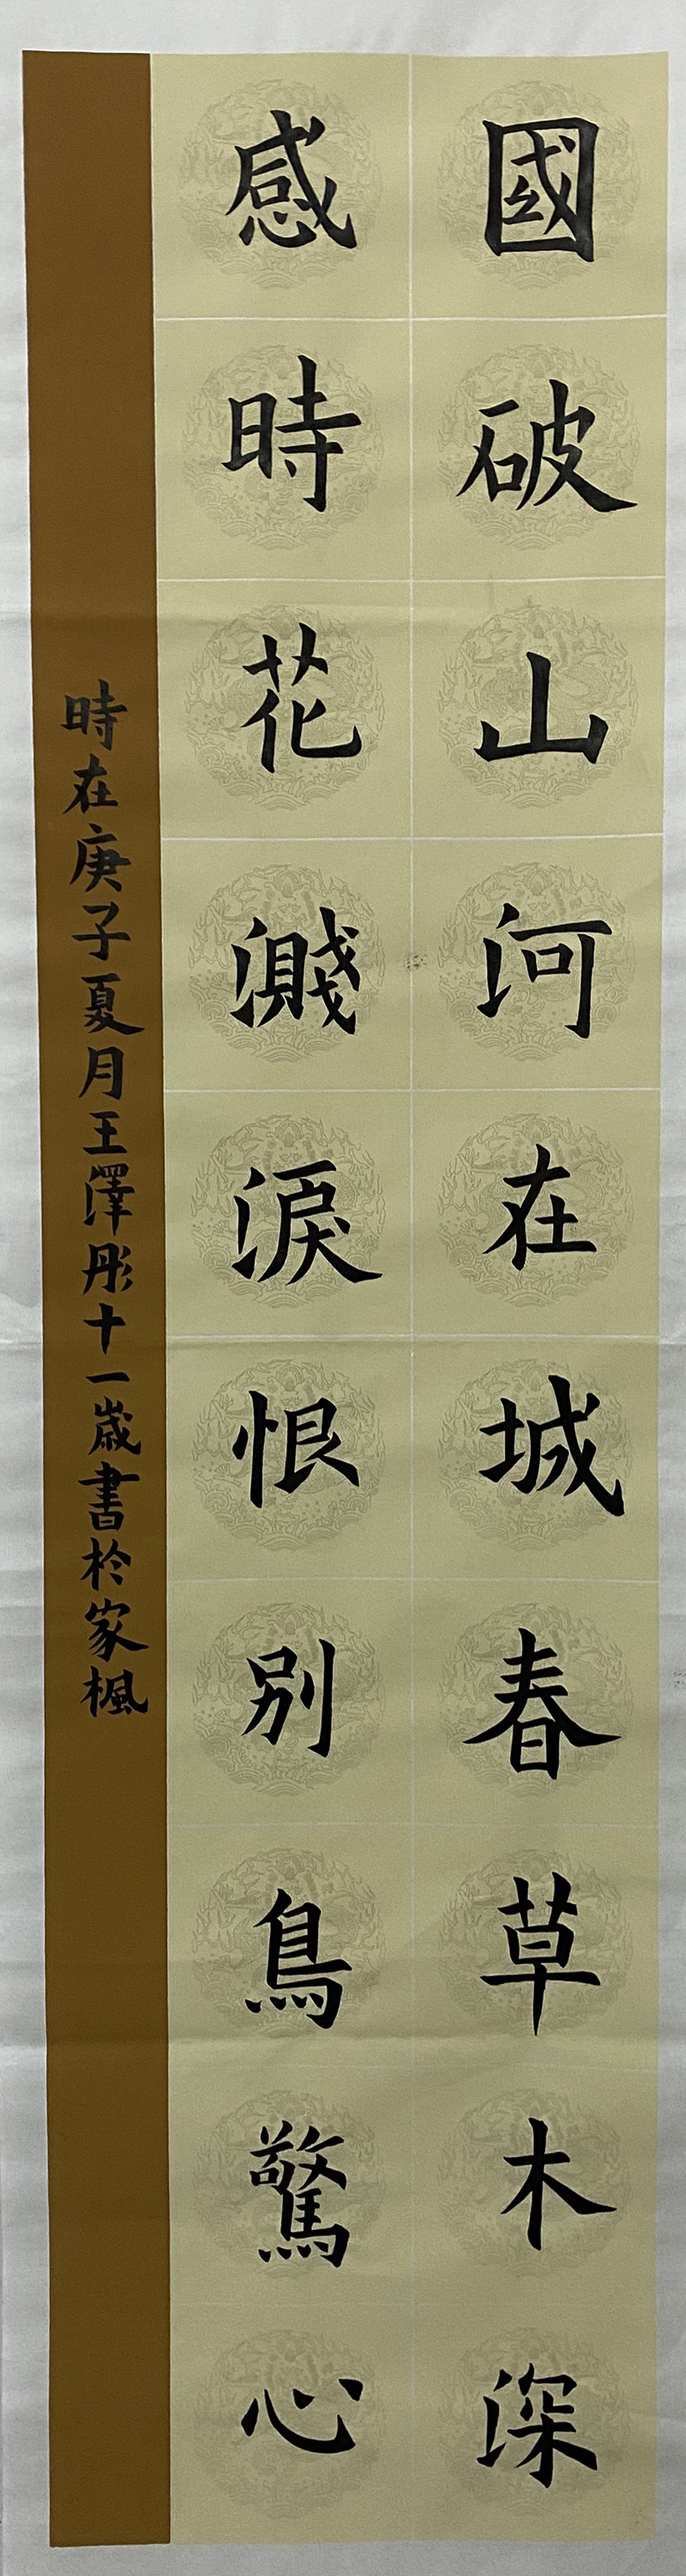 國破山河在城春草木深
感時花濺淚恨別鳥驚心
時在庚子夏月王澤彤十一歲書於家楓